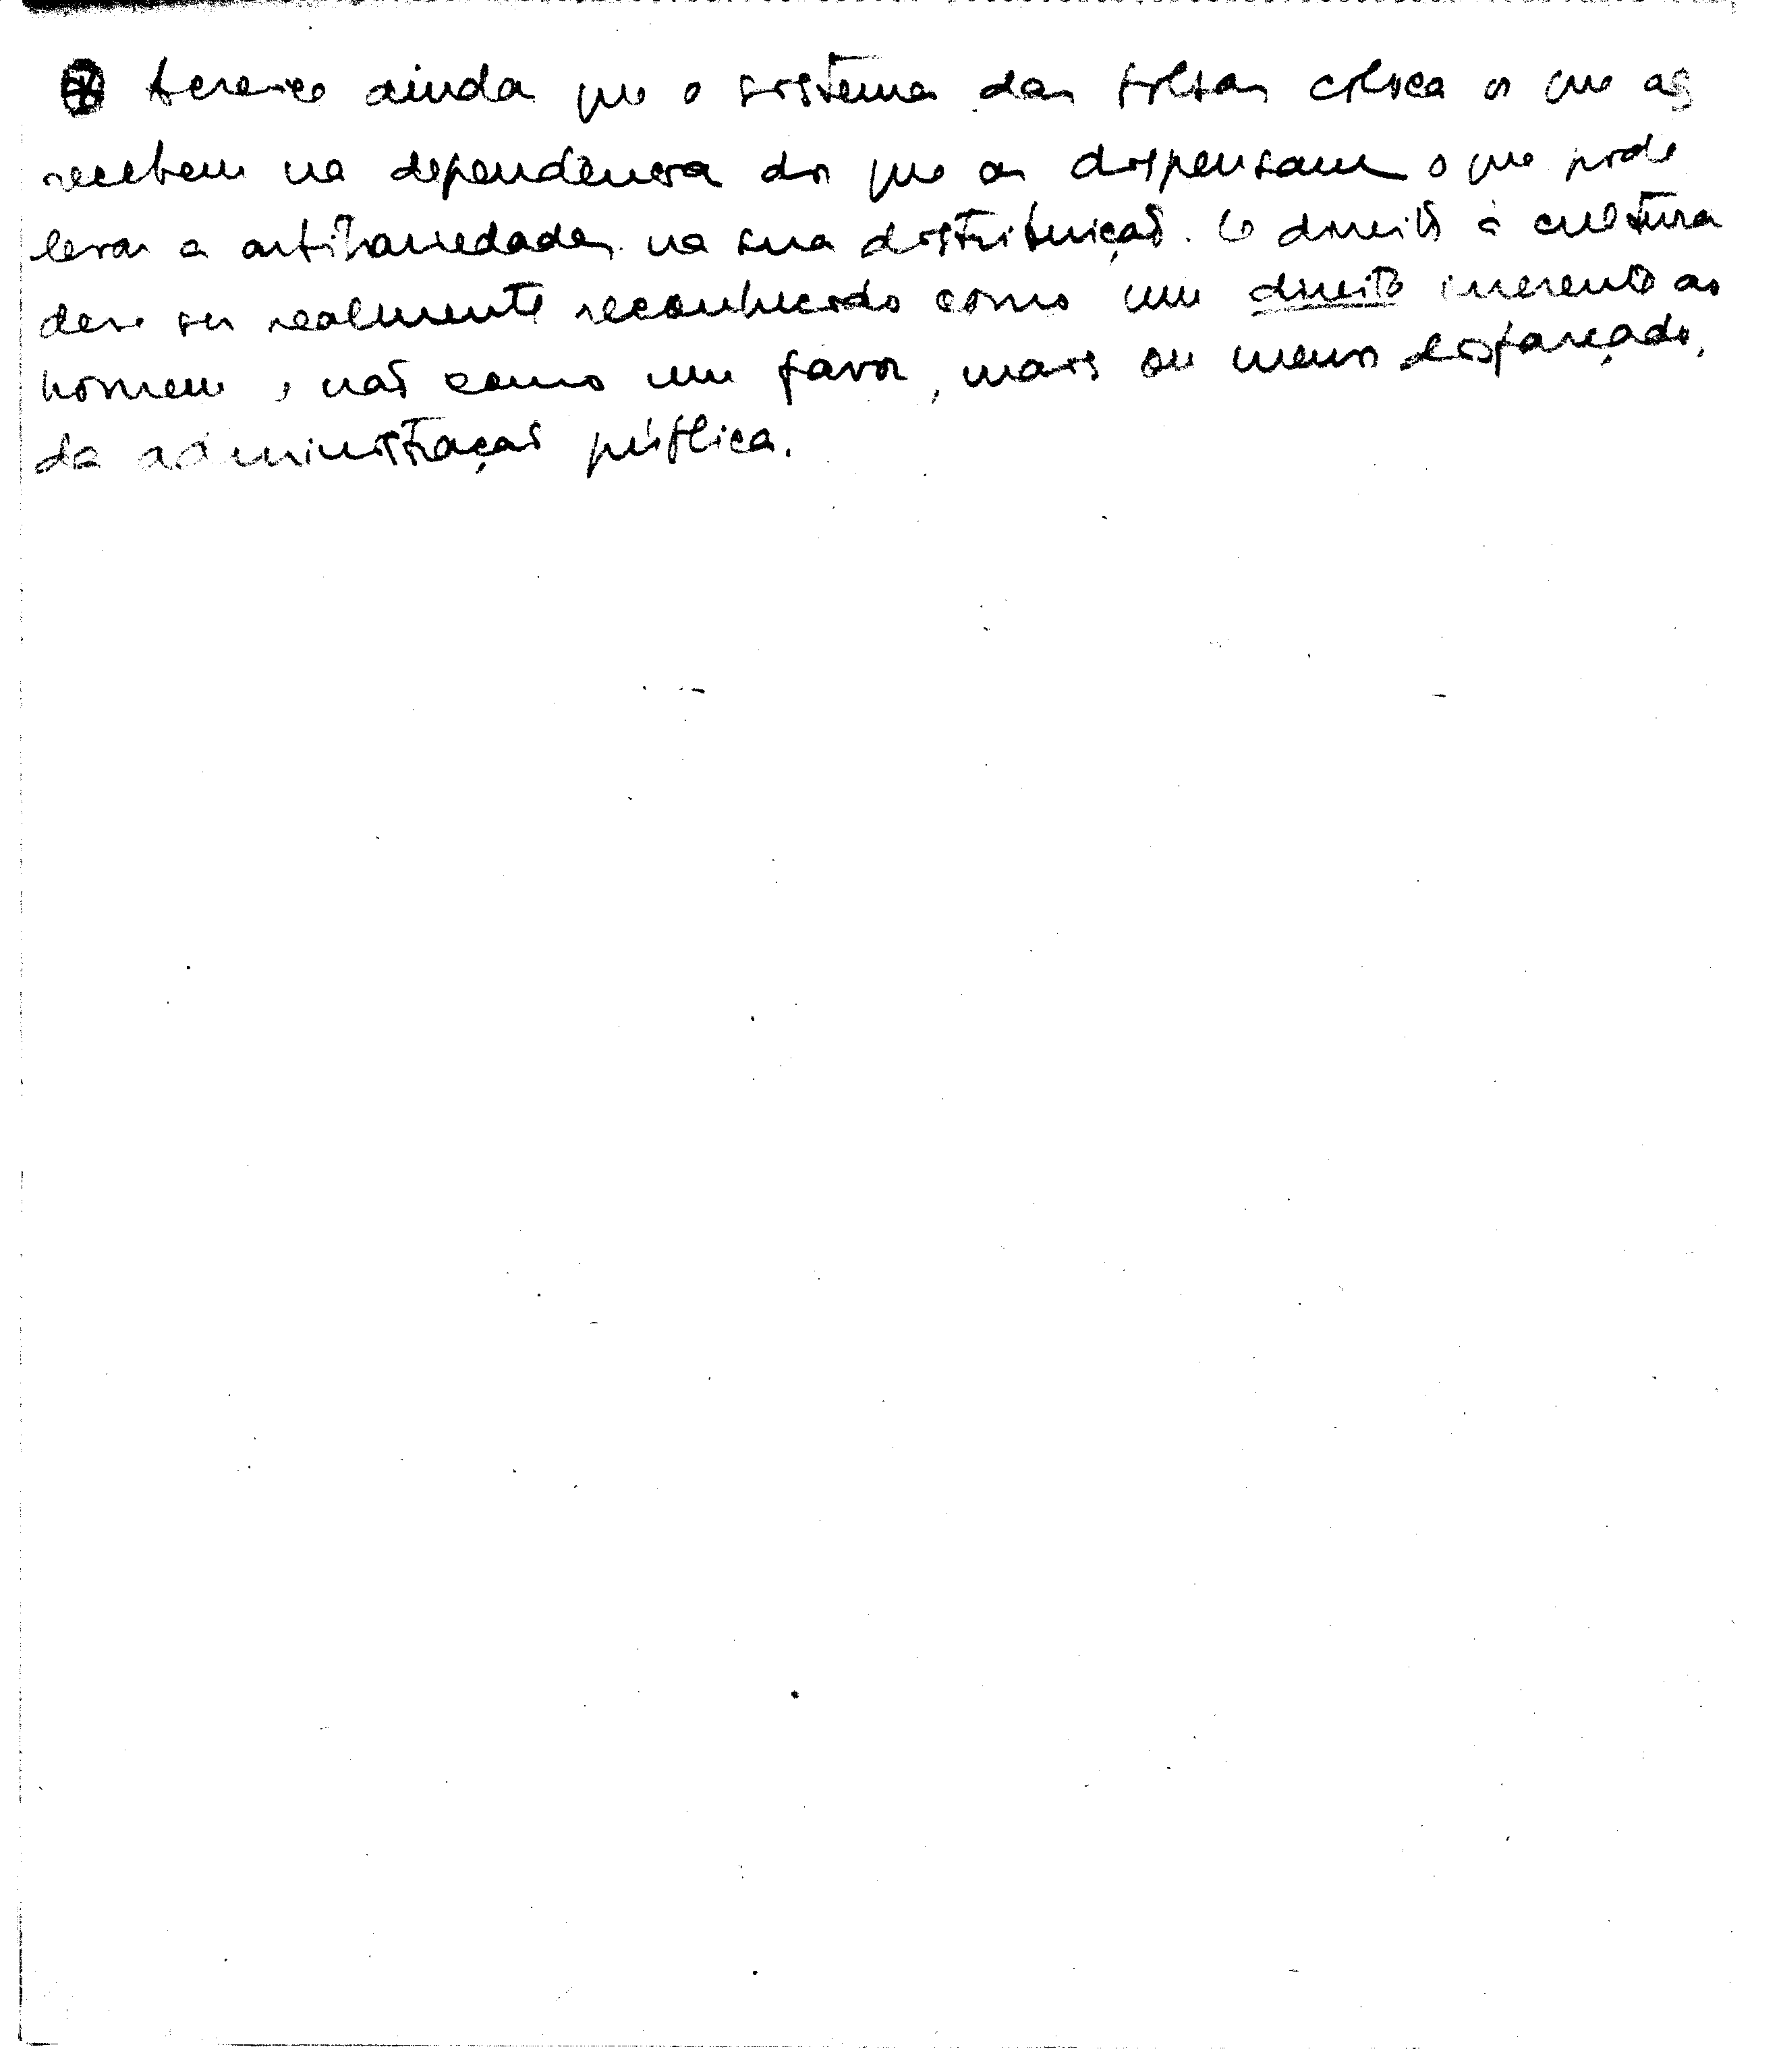 ⊛ Acresce ainda que o sistema das bolsas coloca os que as
recebem na dependência dos que as dispensam o que pode
levar a arbitrariedades na sua distribuição. O direito à cultura
deve ser realmente reconhecido como um direito inerente ao
homem, não como um favor, mais ou menos disfarçado,
da administração pública.